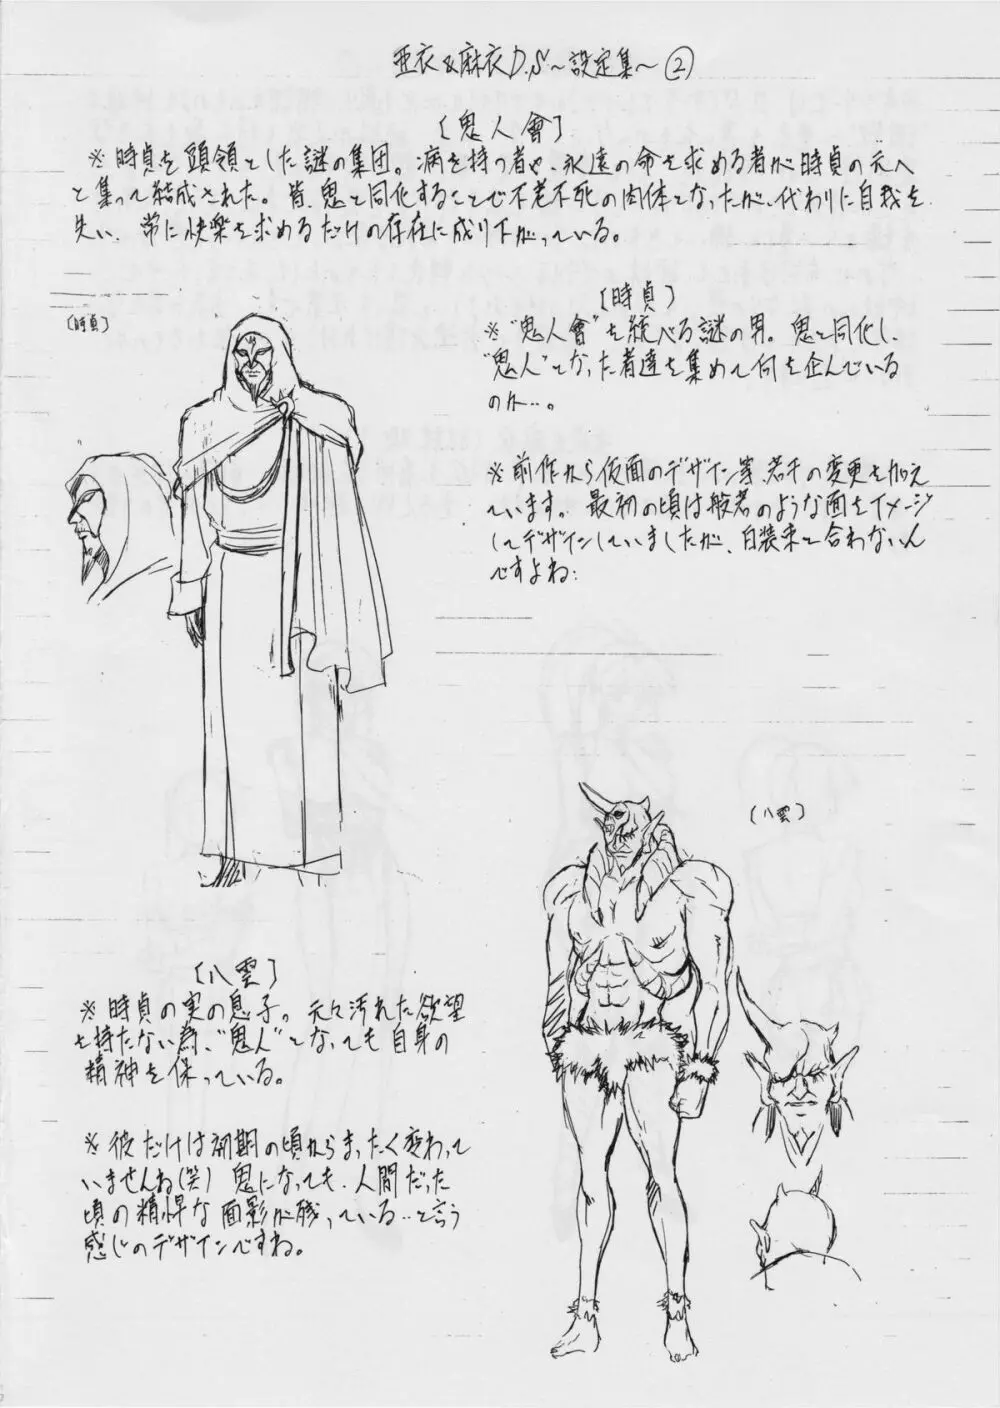 亜衣&麻衣D.S〜設定集〜②
〔鬼人會〕
※時貞を頭領とした謎の集団。病を持つ者や、永遠の命を求める者が時貞の元へ
と集って結成された。皆、鬼と同化することで不老不死の肉体となったが、代わりに自我を
失い、常に快楽を求めるだけの存在に成り下がっている。
〔時貞〕
〔時貞〕
※"鬼人會"を統べる謎の男。鬼と同化し、
"鬼人"となった者達を集めて何を企んでいる
のか…。
※前作から仮面のデザイン等、若干の変更を加え
ています。最初の頃は般若のような面をイメージ
してデザインしていましたが、白装束と合わないん
ですよね;
〔八雲〕
〔八雲〕
※時貞の実の息子。元々汚れた欲望
を持たない為、"鬼人"となっても自身の
精神を保っている。
※彼だけは初期の頃からまったく変わって
いませんね(笑)鬼になっても、人間だった
頃の精悍な面影が残っている…と言う
感じのデザインですね。